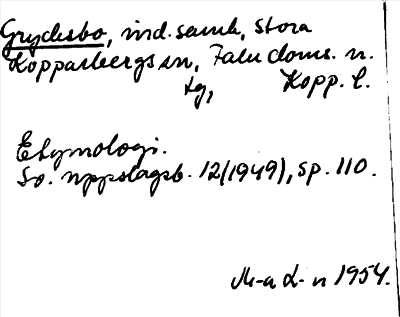 Grycksbo, ind.samh., Stora
Kopparbergs sn, Falu doms. n.
tg, Kopp. l.
Etymologi.
Sv. uppslagsb. 12(1949), sp. 110.
M-a L-n 1954.